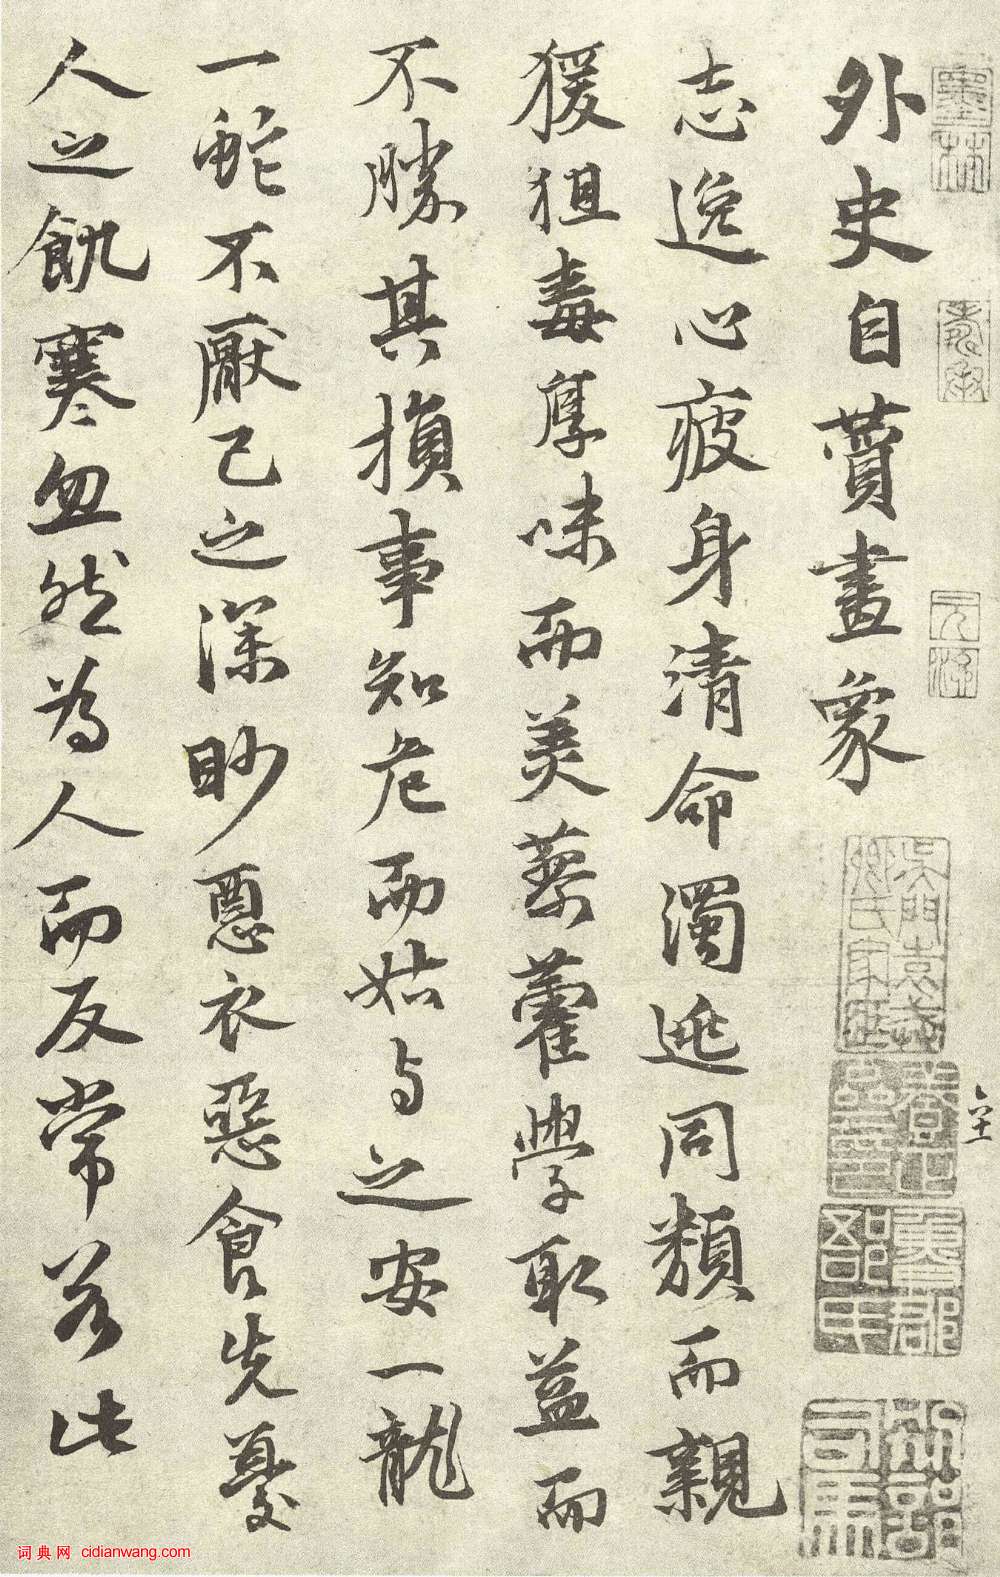 外史自贊畫象
志逸心疲身清命濁逃同類而親
猨狙毒厚味而美藜藿學取益而
不勝其損事知危而姑与之安一龍
一蛇不厭己之深眇惡衣惡食先憂
人之飢寒忽然為人而反常若此
墨林
子京
元汴
司馬
词典网 cidianwang.com